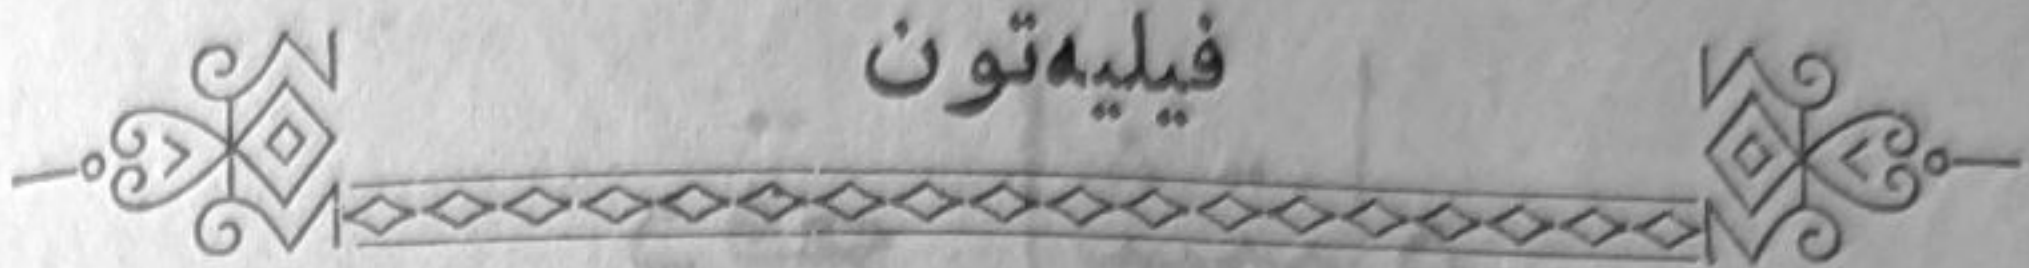 فیلیەتون